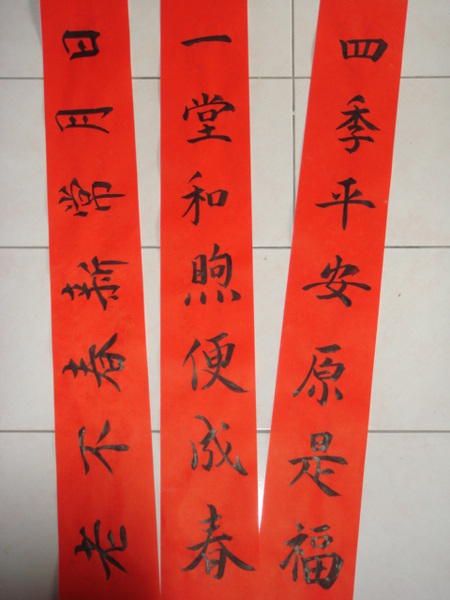 四季平安原是福
一堂和煦便成春
日月常新春不老